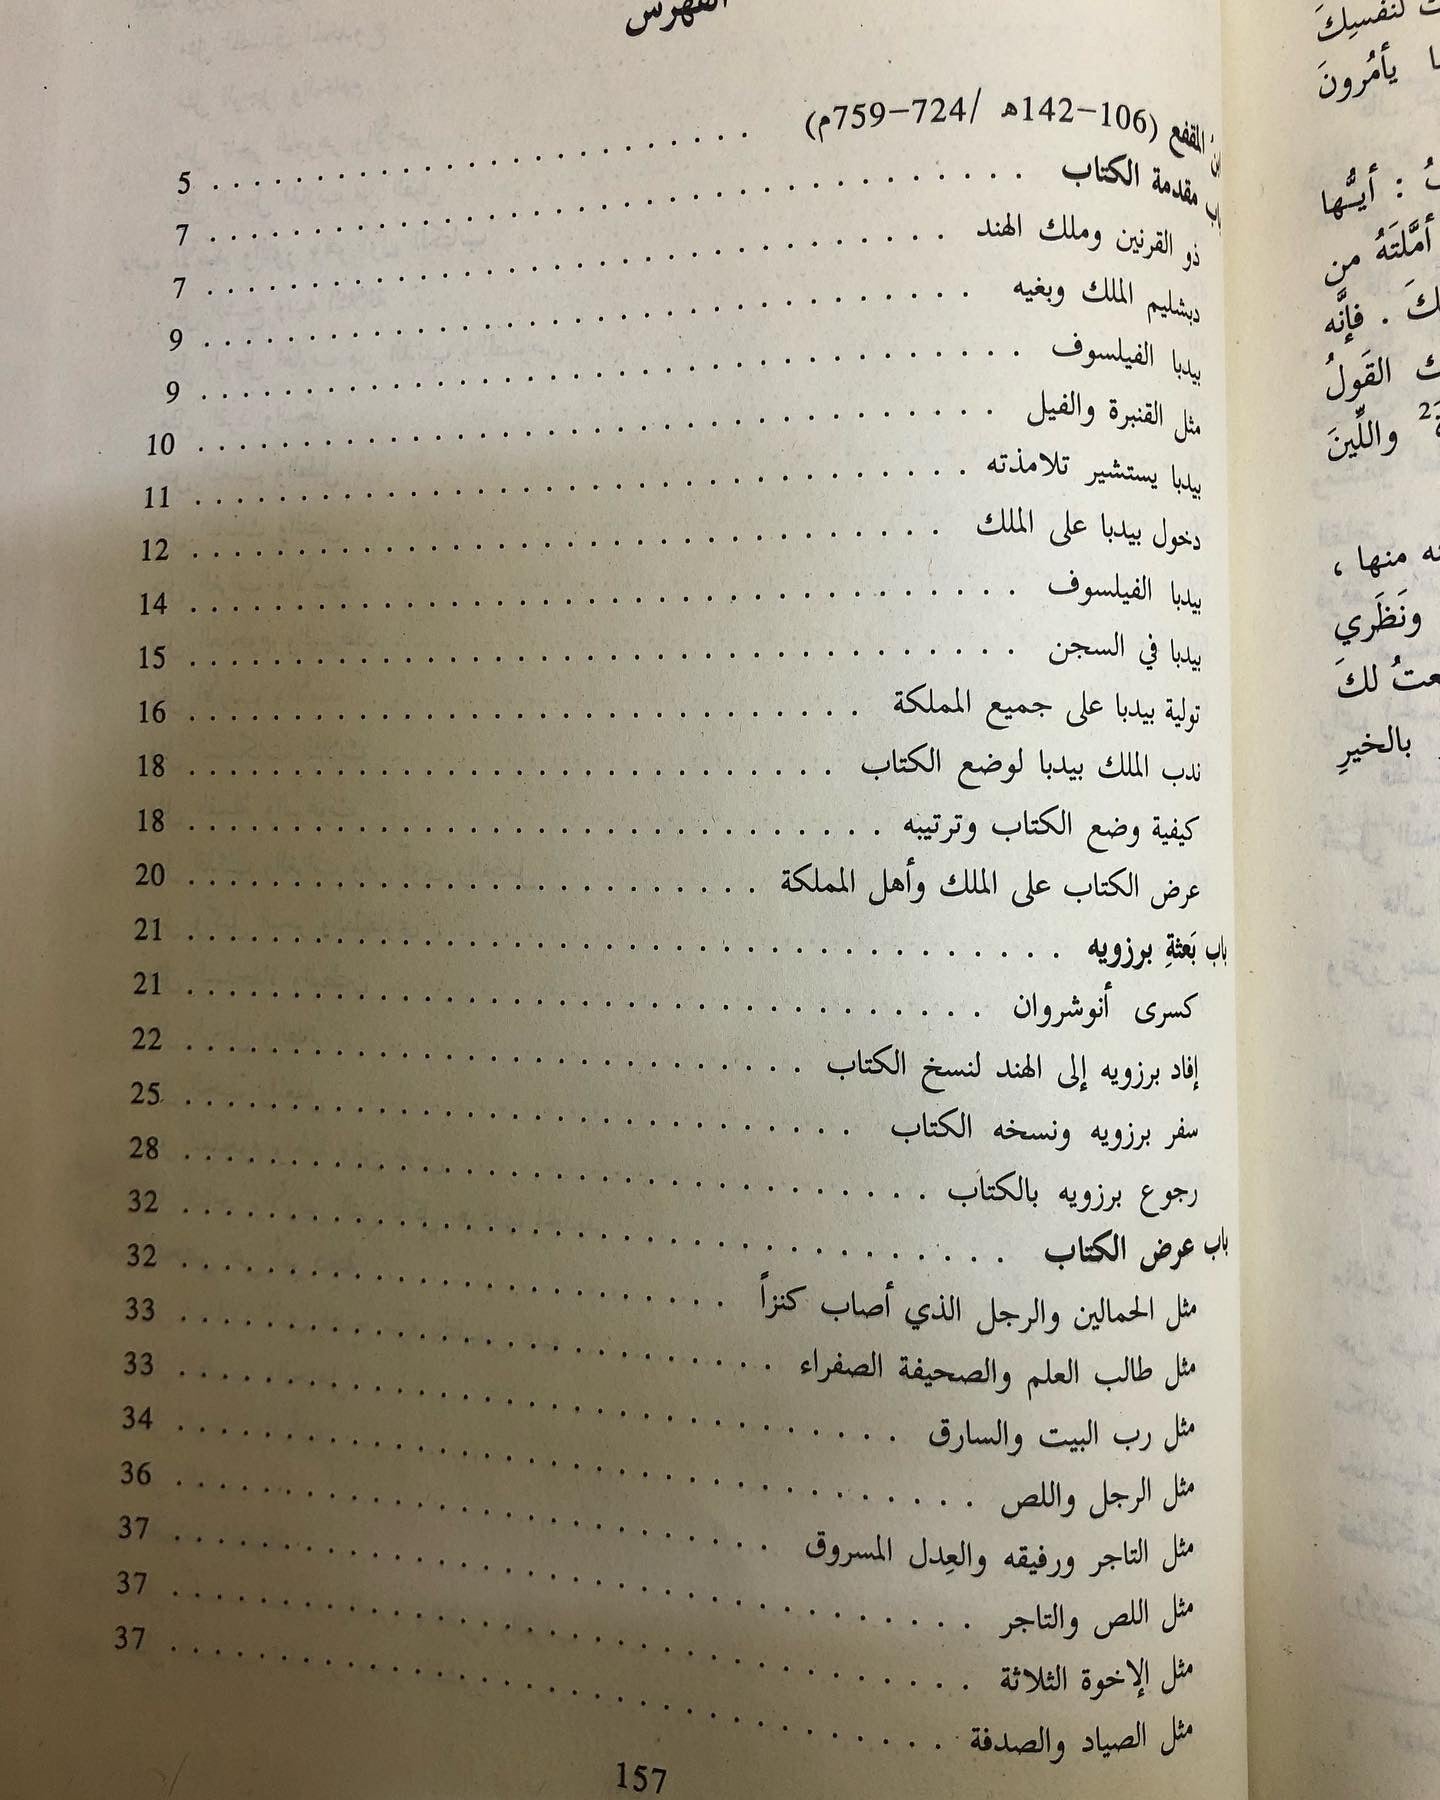 الفهرس
ابن المقفع (106-142ه /724-759م) . . . . . . . . . . 5
باب مقدمة الكتاب . . . . . . . . . . 7
ذو القرنين وملك الهند . . . . . . . . . . 7
دبشليم الملك وبغيه . . . . . . . . . . 9
بيدبا الفيلسوف . . . . . . . . . . 9
مثل القنبرة والفيل . . . . . . . . . . 10
بيدبا يستشير تلامذته . . . . . . . . . . 11
دخول بيدبا على الملك . . . . . . . . . . 12
بيدبا الفيلسوف . . . . . . . . . . 14
بيدبا في السجن . . . . . . . . . . 15
تولية بيدبا على جميع المملكة . . . . . . . . . . 16
ندب الملك بيدبا لوضع الكتاب . . . . . . . . . . 18
كيفية وضع الكتاب وترتيبه . . . . . . . . . . 18
عرض الكتاب على الملك وأهل المملكة . . . . . . . . . . 20
باب بَعثةِ برزويه . . . . . . . . . . 21
كسرى أنوشروان . . . . . . . . . . 21
إفاد برزويه إلى الهند لنسخ الكتاب . . . . . . . . . . 22
سفر برزويه ونسخه الكتاب . . . . . . . . . . 25
رجوع برزويه بالكتاب . . . . . . . . . . 28
باب عرض الكتاب . . . . . . . . . . 32
مثل الحمالين والرجل الذي أصاب كنزاً . . . . . . . . . . 32
مثل طالب العلم والصحيفة الصفراء . . . . . . . . . . 33
مثل رب البيت والسارق . . . . . . . . . . 33
مثل الرجل واللص . . . . . . . . . . 34
مثل التاجر ورفيقه والعِدل المسروق . . . . . . . . . . 36
مثل اللص والتاجر . . . . . . . . . . 37
مثل الإخوة الثلاثة . . . . . . . . . . 37
مثل الصياد والصدفة . . . . . . . . . . 37
157
لنفسِكَ
يأمُرونَ
: أيـُّها
أمَّلتَهُ من
. فإنَّه
القَولُ
2 واللِّينَ
منها ،
ونَظَري
لكَ
بالخيرِ